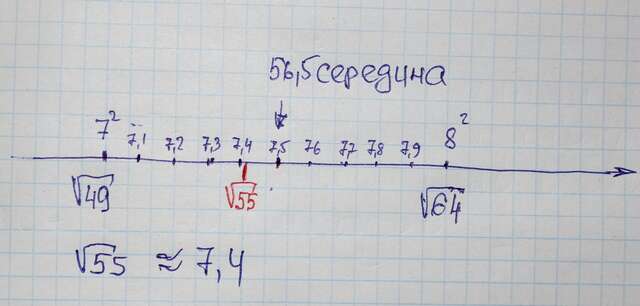 56,5 середина
7² 7,1 7,2 7,3 7,4 7,5 7,6 7,7 7,8 7,9 8²
√49 √55 √64
√55 ≈ 7,4